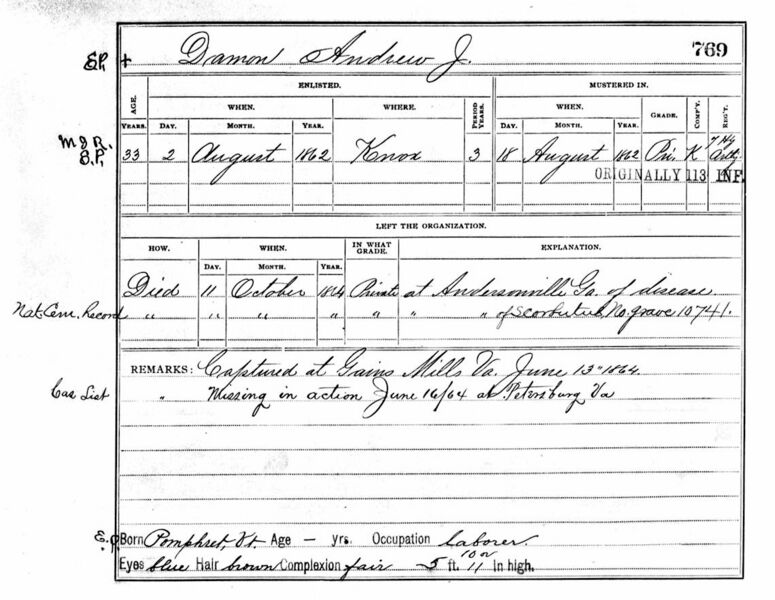 E.P. + Damon Andrew J. 769
ENLISTED. MUSTERED IN.
AGE. WHEN. WHERE. PERIOD YEARS. WHEN. GRADE. COMP'Y. REG'T.
YEARS. DAY. MONTH. YEAR. DAY. MONTH. YEAR.
M & R.
E.P. 33 2 August 1862 Knox 3 18 August 1862 Pri. K 7 Hy Arty.
ORIGINALLY 113 INF.
LEFT THE ORGANIZATION.
HOW. WHEN. IN WHAT GRADE. EXPLANATION.
DAY. MONTH. YEAR.
Died 11 October 1864 Private at Andersonville Ga. of disease.
Nat. Cem. Record " " " " " " " of Scorbutus, No. grave 10741.
REMARKS: Captured at Gains Mills Va. June 13" 1864.
Cas List " Missing in action June 16/64 at Petersburg Va
E.P. Born Pomphret, Vt. Age — yrs. Occupation laborer.
Eyes blue Hair brown Complexion fair 5 ft. 10 or 11 in high.